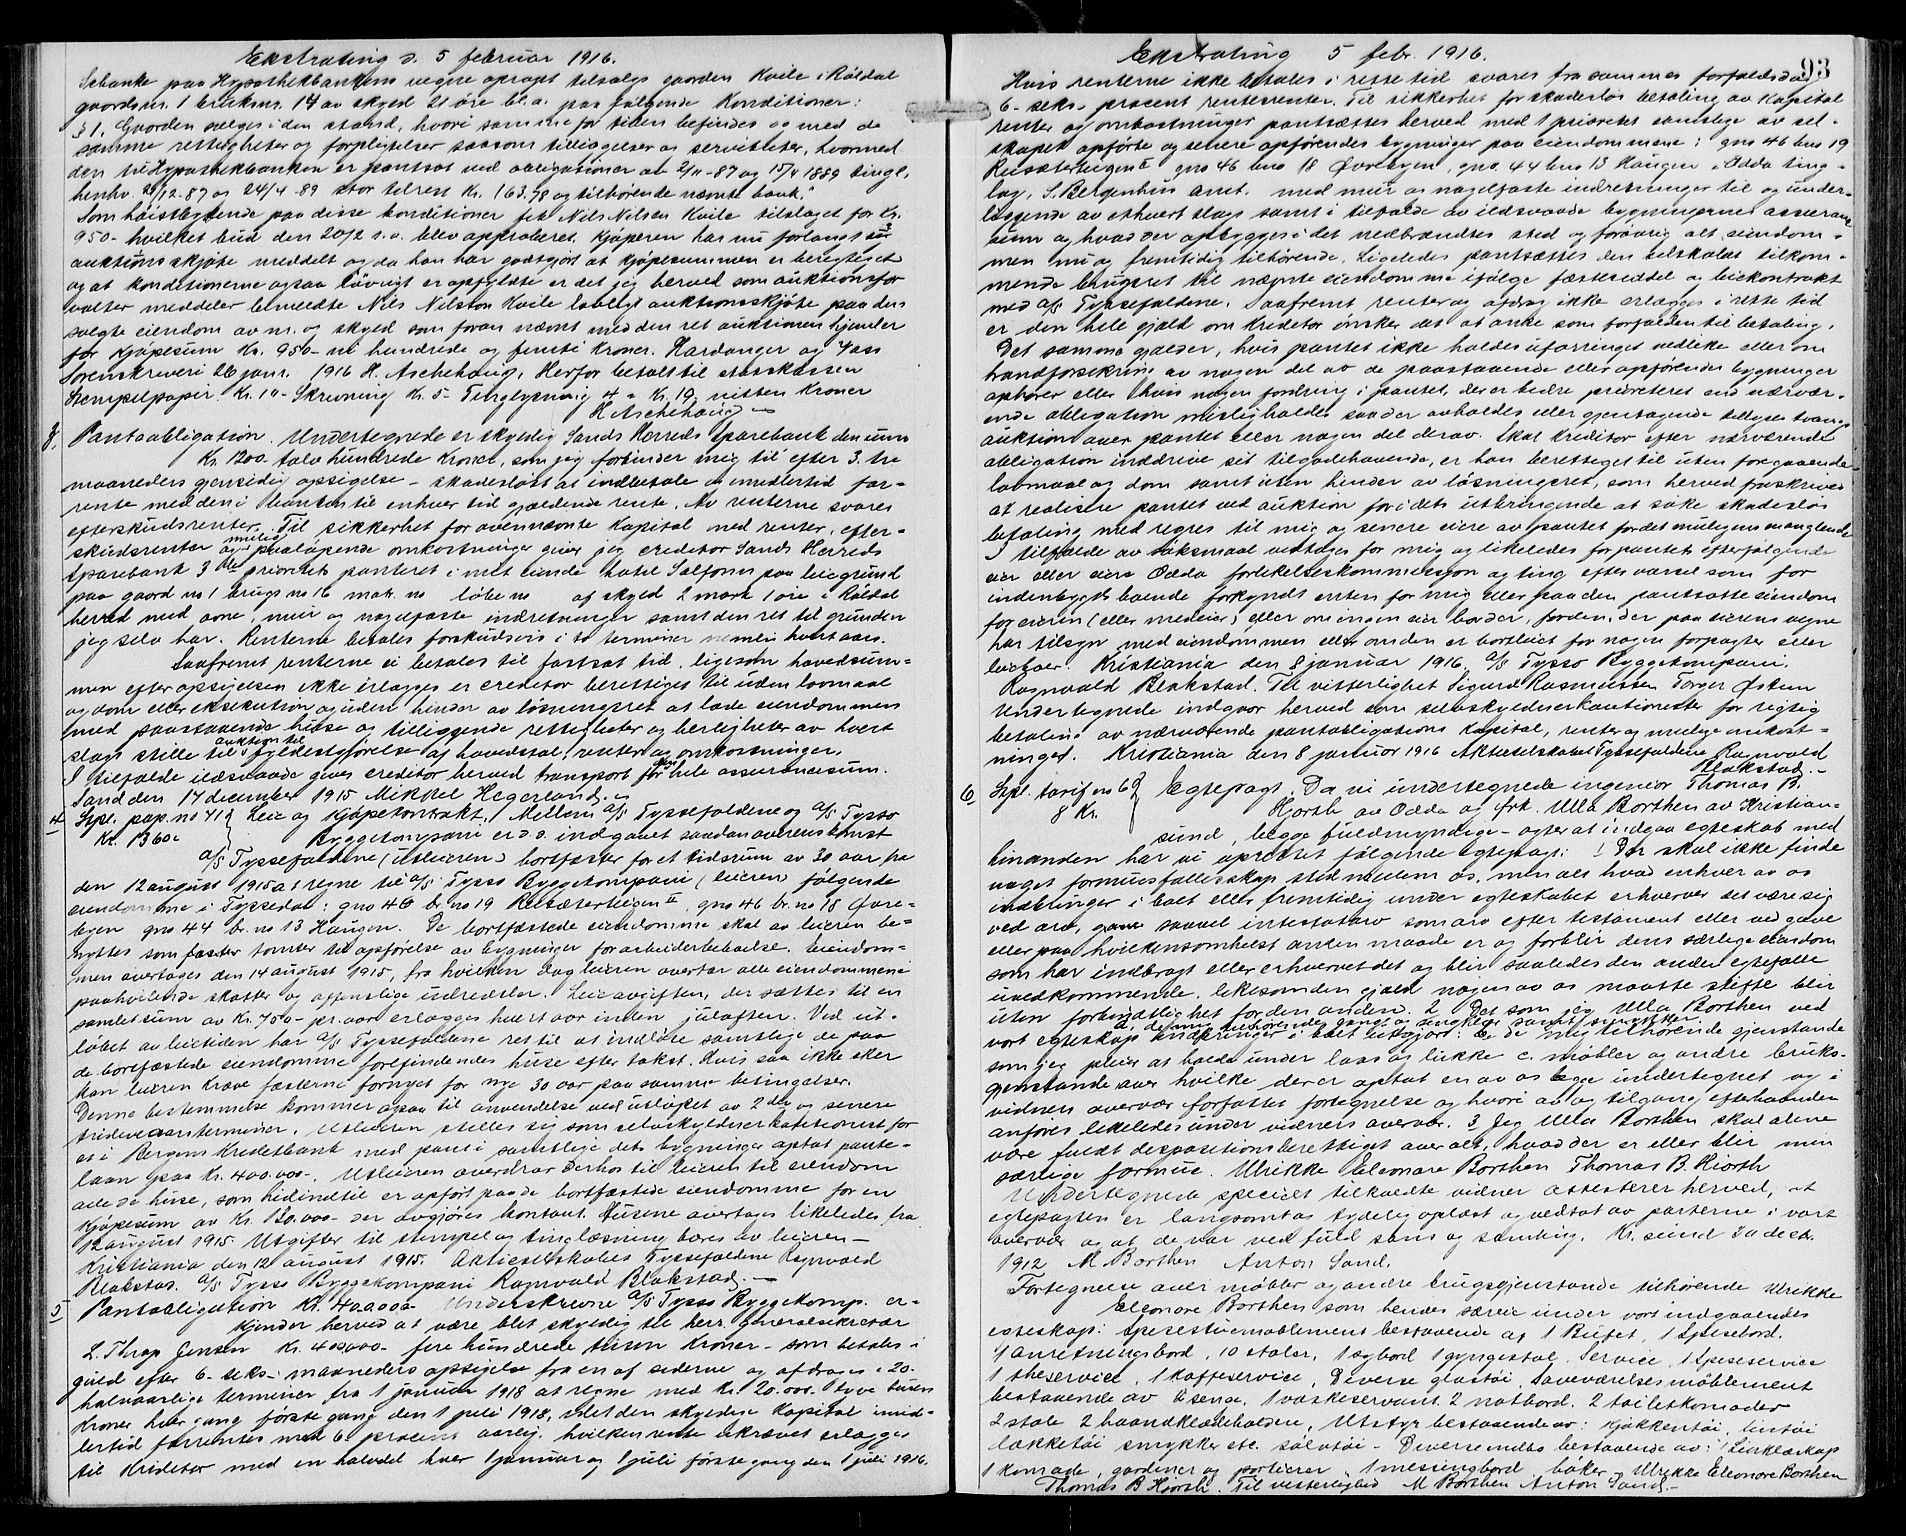 Ekstrating d. 5 februar 1916.
Sebanke paa Hypothekbankens vegne opraapt tilsalgs gaarden Kvile i Röldal
gaardsnr. 1 bruksnr. 14 av skyld 21 öre bl.a. paa følgende Konditioner:
§ 1. Gaarden sælges i den stand, hvori samme for tiden befindes og med de
samme rettigheter og forpligtelser saasom tilliggelser og servituter, hvormed
den til Hypothekbanken er pantsat ved obligationer av 2/11-87 og 15/4 1889 tingl.
henhv 29/12-87 og 24/4-89 stor tilrest Kr. 163.78 og tilhörende nævnte bank."
Som höistbydende paa disse konditioner fik Nils Nilsen Kvile tilslaget for Kr.
950- hvilket bud den 20/12 s.a. blev approberet. Kjøperen har nu forlangt
auktionsskjöte meddelt og da han har godtgjort at kjøpesummen er berigtiget
og at konditionerne ogsaa løvrigt er opfyldte er det jeg herved som auktionsfor
valter meddeler bemeldte Nils Nilsen Kvile lovligt auktionsskjöte paa den
solgte eiendom av nr. og skyld som foran nævnt med den ret auktionen hjemler
for Kjöpesum Kr. 950- ni hundrede og femti Kroner. Hardanger og Voss
Sorenskriveri 26 janr. 1916 H. Aschehoug. Herfor betalt til statskassen
Stempelpapir Kr. 10- Skrivning Kr. 5- Tinglysning 4 = Kr. 19, nitten Kroner
H Aschehoug
3, Pantobligation. Undertegnede er skyldig Sands Herreds Sparebank den sum
Kr. 1200- tolv hundrede Kroner, som jeg forbinder mig til efter 3. tre
maaneders gjensidig opsigelse - skadeslöst at indbetale og imidlertid for-
rente med den i Banken til enhver tid gjældende rente. Av renterne svares
efterskudsrenter. Til sikkerhet for ovennævnte Kapital med renter, efter-
skudsrenter og mulig paalöpende omkostninger giver jeg creditor Sands Herreds
Sparebank 3die prioritets panteret i mit eiende hotel Saltfonn paa leiegrund
paa gaard no 1 brugs no 16 matr. no löbe no af skyld 2 mark 1 öre i Röldal
herred med ovne, mur og nagelfaste indretninger samt den ret til grunden
jeg selv har. Renterne betales forskudsvis i to terminer nemlig hvert aar.
Saafremt renterne ei betales til fastsat tid, ligesom hovedsum-
men efter opsigelsen ikke erlægges er creditor berettiget til uden lovmaal
og dom eller eksekution og uden hinder av lösningsret at lade eiendommen
med paastaaende huse og tilliggende rettigheter og herligheter av hvert
slags stille til auktion til fyldestgjörelse af hovedstol, renter og omkostninger.
I tilfælde ildsvaade gives creditor herved transport for den hele assurancesum.
Sand den 17 december 1915 Mikkel Hegerland.
4 Stpl. pap. no 41 Leie og Kjöpekontrakt. Mellem A/S Tyssefaldene og A/S Tysso
Kr. 1360- Byggekompani er d.d. indgaaet saadan overenskomst
A/S Tyssefaldene (utleieren) bortfæster for et tidsrum av 30 aar fra
den 12 august 1915 at regne til A/S Tysso Byggekompani (leieren) følgende
eiendomme i Tyssedal: gno 46 br. no 19 Reisæterteigen II, gno 46 br. no 18 Øvre-
byen gno 44 br. no 13 Haugen. De bortfæstede eiendomme skal av leieren be-
nyttes som faste tomter til opførelse av bygninger for arbeiderbeboelse. Eiendom-
men overtages den 14 august 1915, fra hvilken dag leieren overtar alle eiendommene
paahvilende skatter og offentlige utredsler. Leieavgiften, der sættes til en
samlet sum av Kr. 750- pr. aar erlægges hvert aar inden julaften. Ved ut-
løbet av leietiden har A/S Tyssefaldene ret til at indløse samtlige de paa
de bortfæstede eiendomme forefindendes huse efter takst. Hvis saa ikke sker
kan leieren kræve fæsterne fornyet for nye 30 aar paa samme betingelser.
Denne bestemmelse kommer ogsaa til anvendelse ved utløpet av 2den og senere
tredive aarsterminer. Utleieren stilles sig som selvskyldnerkautionist for
et i Bergens Kreditbank med pant i samtlige dets bygninger optat pante-
laan stor Kr. 400.000-. Utleieren overdrar derhos til leieren til eiendom
alle de huse, som hidindtil er opført paa de bortfæstede eiendomme for en
Kjöpesum av Kr. 120.000- der avgjöres kontant. Husene overtages likeledes fra
12 august 1915. Utgifter til stempel og tinglæsning bæres av leieren -
Kristiania den 12 august 1915. Aktieselskabet Tyssefaldene Ragnvald
Blakstad. A/S Tysso Byggekompani Ragnvald Blakstad. -
5 Pantobligation Kr. 400000- Underskrevne A/S Tysso Byggekomp. er-
kjender herved at være blit skyldig til herr generalsikretær
L. Thrap Jensen Kr. 400000- fire hundrede tusen Kroner - som betales i
guld efter 6- seks- maaneders opsigelse fra en af siderne og afdrages i 20-
halvaarlige terminer fra 1 januar 1918 at regne med Kr. 20.000. tyve tusen
Kroner hver gang første gang den 1 juli 1918, idet den skyldige Kapital imid-
lertid forrentes med 6 procent aarlig, hvilken rente ukrævet erlægges
til Kreditor med en halvdel hver 1 januar og 1 juli første gang den 1 juli 1916.
Ekstrating 5 febr. 1916.
93
Hvis renterne ikke betales i rette tid svares fra sammes forfaldsdag
6- seks- procent rentesrenter. Til sikkerhet for skadesløs betaling av Kapital
renter og omkostninger pantsættes herved med 1 prioritet samtlige av sel-
skapet opførte og senere opførendes bygninger paa eiendommene: gno 46 bno 19
Reisæterteigen II gno 46 bno 18 Øvrebyen, gno. 44 bno 13 Haugen i Odda ting-
lag, S. Bergenhus amt. med mur og nagelfaste indretninger til og under-
liggende av ethvert slags samt i tilfælde av ildsvaade bygningernes assurance
sum og hvad der opbygges i det nedbrændtes sted og forøvrig alt eiendom-
men nu og fremtidig tilhørende. Ligeledes pantsættes den selskabet tilkom-
mende bruksret til nævnte eiendomme ifølge fæsteseddel og leiekontrakt
med A/S Tyssefaldene. Saafremt renter og afdrag ikke erlægges i rette tid
er den hele gjæld om kreditor ønsker det at anse som forfalden til betaling.
Det samme gjælder, hvis pantet ikke holdes uforringet vedlike eller om
brandforsikring av nogen del av de paastaaende eller opførendes bygninger
ophører eller hvis nogen fordring i pantet, der er bedre prioriteret end nærvær-
ende obligation misligholdes saa der avholdes eller gjentagende tillyses tvangs
auktion over pantet eller nogen del derav. Skal kreditor efter nærværende
obligation inddrive sit tilgodehavende, er han berettiget til uten foregaaende
lovmaal og dom samt uten hinder av løsningsret, som herved fraskrives
at realisere pantet ved auktion for i dets utbringende at søke skadesløs
betaling med regres til mig og senere eiere av pantet for det muligens manglende
I tilfælde av søksmaal vedtages for mig og likeledes for pantets efterfølgende
eier eller eiere Odda forlikelseskommission og ting efter varsel som for
indenbygds boende forkyndt enten for mig eller paa den pantsatte eiendom
for eieren (eller medeier) eller om ingen eier bor der, for den, der paa eierens vegne
har tilsyn med eiendommen eller om den er bortleiet for nogen forpagter eller
leieboer. Kristiania den 8 januar 1916. A/S Tysso Byggekompani.
Ragnvald Blakstad. Til vitterlighet Sigurd Rasmussen Torger Østern
Undertegnede indgaar herved som selvskyldnerkautionister for rigtig
betaling av nærværende pantobligations Kapital, renter og mulige omkost-
ninger. Kristiania den 8 januar 1916 Aktieselskabet Tyssefaldene Ragnvald
Blakstad. -
6, Stpl. tarif no 62 Egtepagt. Da vi undertegnede ingeniør Thomas B.
8 Kr. Hjorth av Odda og frk. Ulla Borthen av Kristian-
sund, begge fuldmyndige - agter at indgaa egteskab med
hinanden har vi oprettet følgende egtepagt: 1 Der skal ikke finde
noget formuesfællesskap sted mellem os, men alt hvad enhver av os
indbringer i boet eller fremtidig under egteskabet erhverver det være sig
ved arv, gave saavel intestatarv som arv efter testament eller ved gave
eller paa hvilkensomhelst anden maade er og forblir dens særlige eiendom
som har indbragt eller erhvervet det og blir saaledes den anden egtefælle
uvedkommende, likesom den gjæld nogen av os maatte stifte blir
uten forbindtlighet for den anden. 2 Det som jeg Ulla Borthen ved
vort egteskap indbringer i boet utgjør: a, de mig tilhørende gang og sengklær samt smykker b, de mig tilhørende gjenstande
som jeg pleier at holde under laas og lukke c. møbler og andre bruks-
gjenstande over hvilke der er optat en av os begge undertegnet og i
vidners overvær forfattet fortegnelse og hvori av og tilgang efterhaanden
anføres likeledes under vidners overvær. 3 Jeg Ulla Borthen skal alene
være fuldt dispositionsberettiget over alt, hvad der er eller blir min
særlige formue. Ulrikke Eleonore Borthen Thomas B. Hiorth
Undertegnede specielt tilkaldte vidner attesterer herved, at
egtepagten er langsomt og tydelig oplæst og vedtat av parterne i vort
overvær og at de var ved fuld sans og samling. Kr. sund 30 decbr.
1912 M Borthen Anton Sand.
Fortegnelse over møbler og andre brugsgjenstande tilhørende Ulrikke
Eleonore Borthen som hendes særeie under vort indgaaendes
egteskap: Spisestuemøblement bestaaende af 1 Buffet, 1 Spisebord.
1 Anretningsbord, 10 stoler, 1 sybord 1 gyngestol, Service, 1 Spiseservice
1 theservice, 1 kaffeservice, Diverse glastøi, Soveværelsesmøblement
bestaaende av 2 senge, 1 vaskeservant 2 natbord. 2 toiletkomoder
2 stole 2 haandklædeholdere, Utstyr bestaaende av: Kjøkkentøi, lintøi
dækketøi smykker etc. sølvtøi - Diverse indbo bestaaende av: 1 Linklæskap
1 komode, gardiner og portierer, 1 messingbord, bøker. Ulrikke Eleonore Borthen
Thomas B Hjorth. Til vitterlighed M Borthen Anton Sand. -